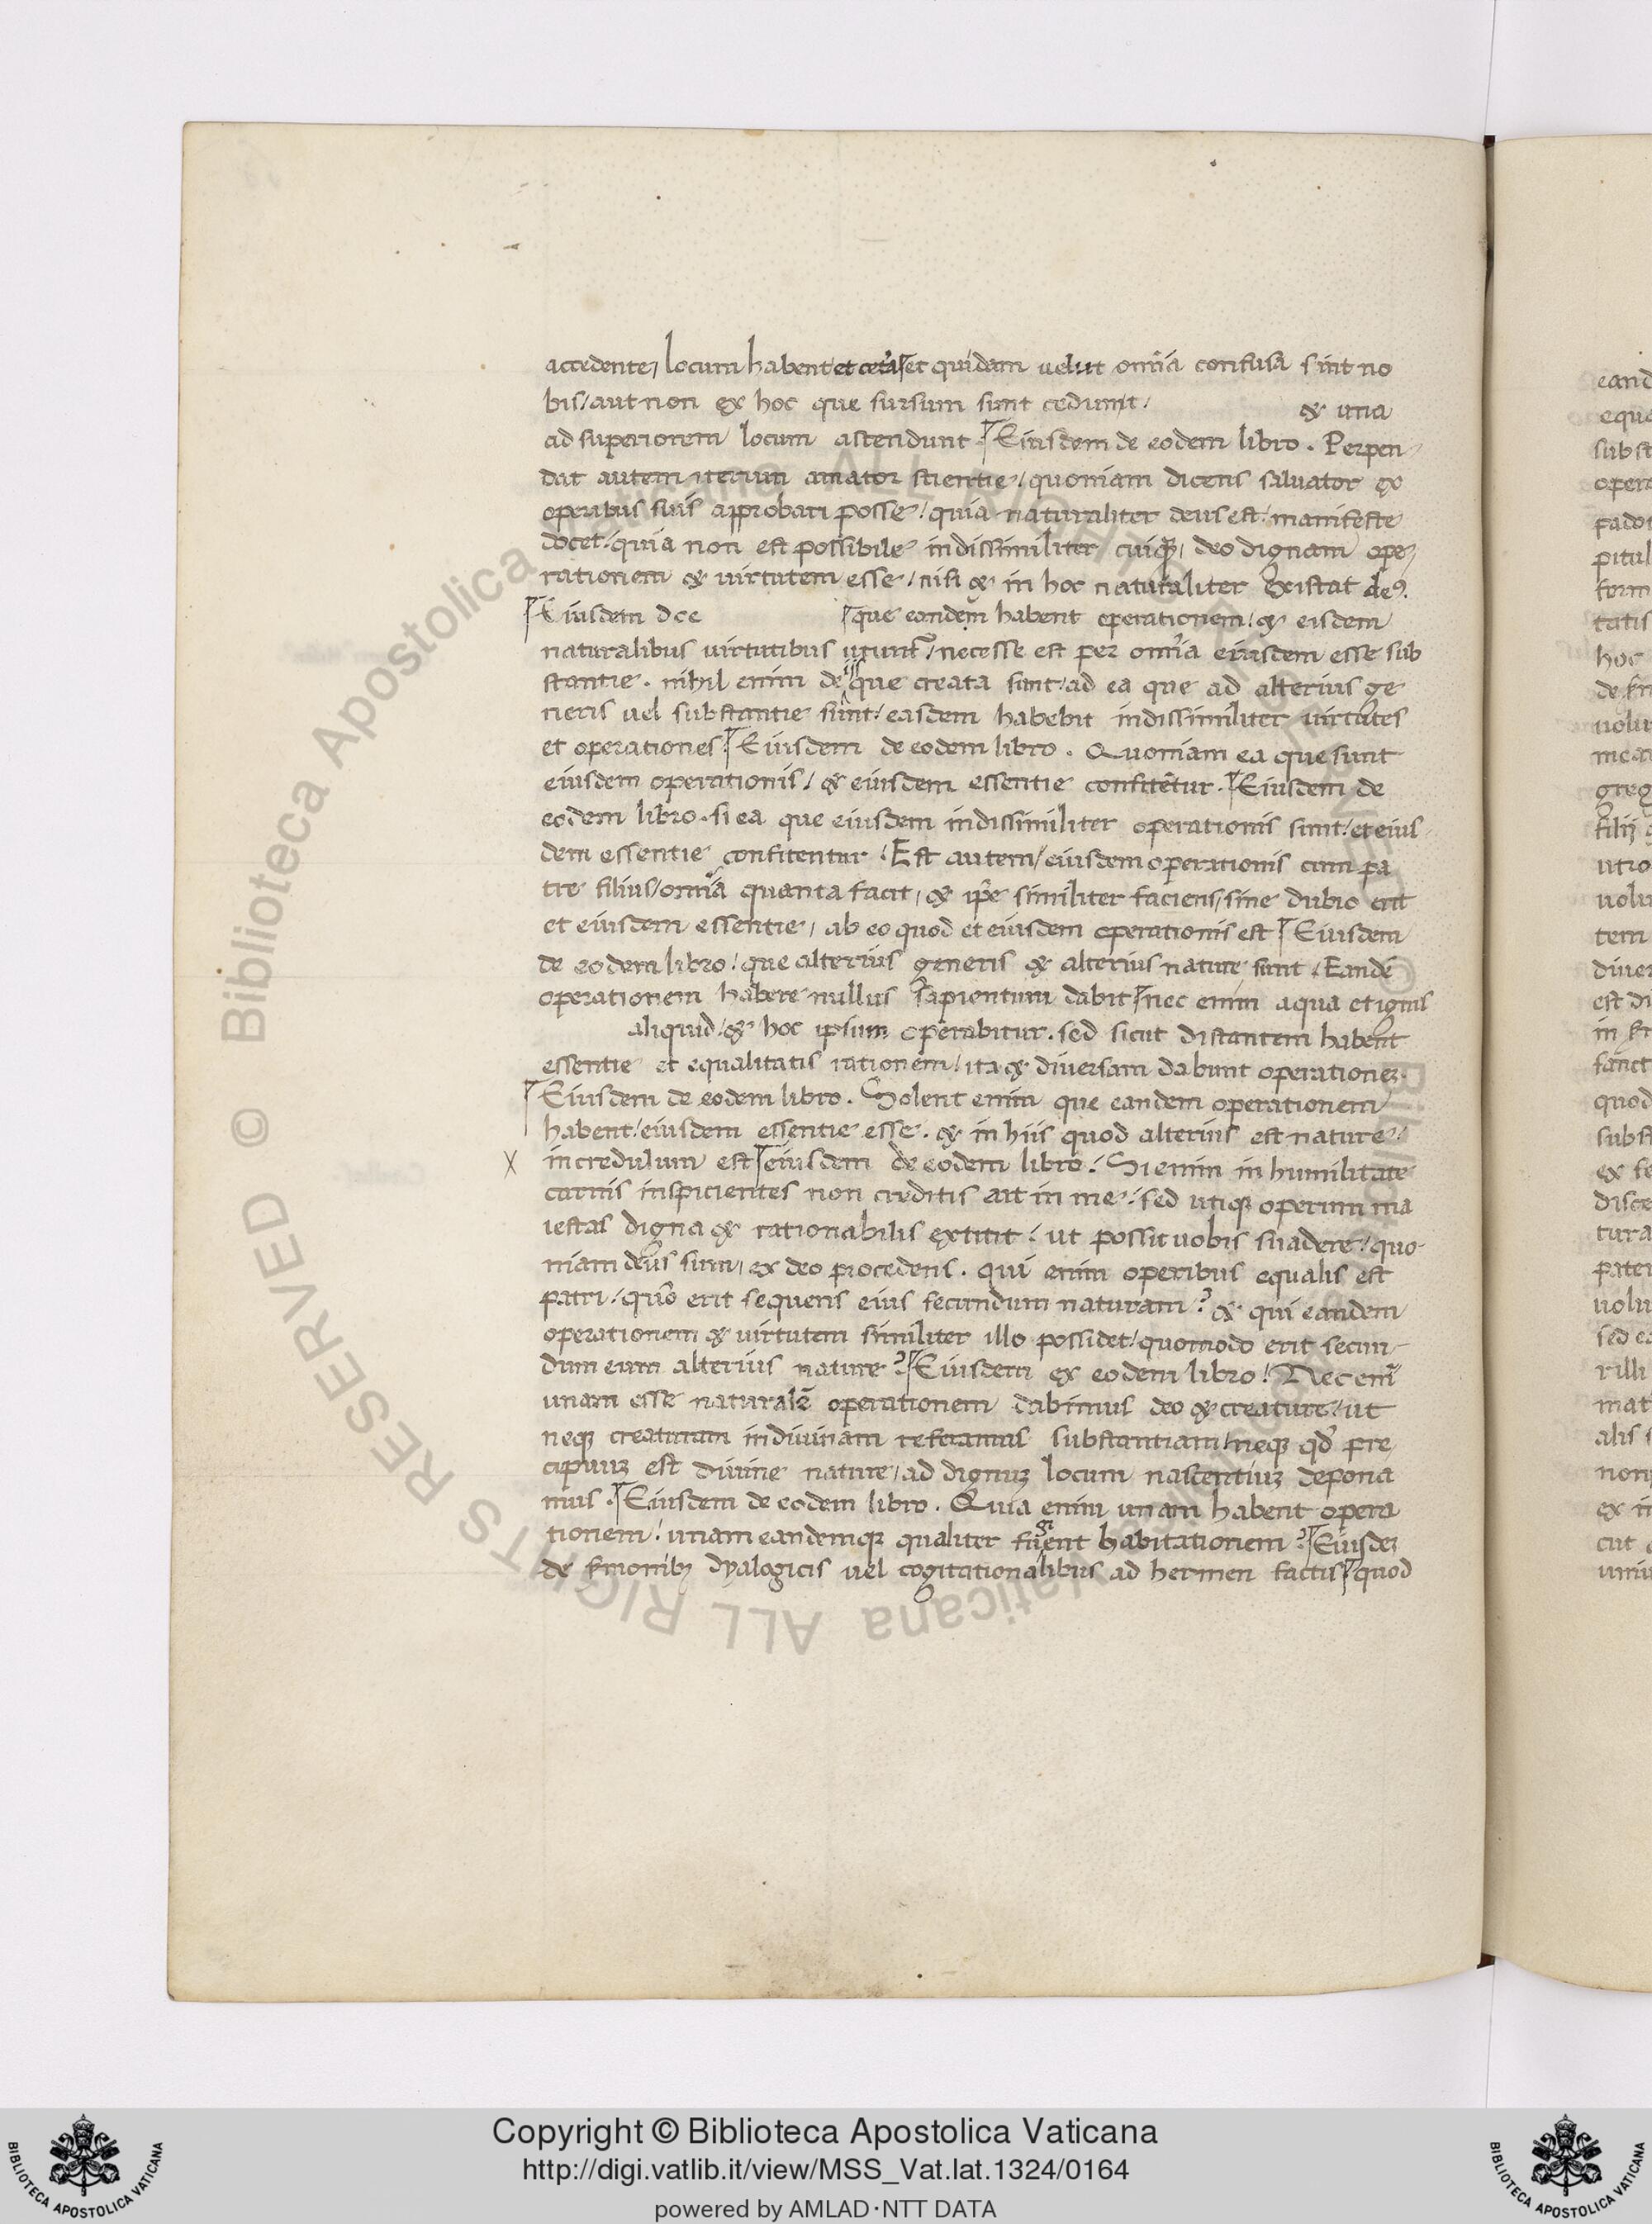 accedente, locum habent et cet'a et quidam velut om̅ia confusa sint no
bis / aut non ex hoc que sursum sunt cedunt / & una
ad superiorem locum ascendunt. Eiusdem de eodem libro. Perpen
dat autem iterum amator scientie / quoniam dicens saluator ex
operibus suis approbari posse / quia naturaliter deus est / manifeste
docet / quia non est possibile indissimiliter cuiqꝫ, deo dignam ope
rationem & virtutem esse / nisi & in hoc naturaliter existat deꝰ.
Eiusdem dce que eandem habent operationem / & eisdem
naturalibus virtutibus utunt᷑ / necesse est per om̅ia eiusdem esse sub
stantie. nihil enim de que creata sunt / ad ea que ad alterius ge
neris vel substantie sunt / easdem habebit indissimiliter virtutes
et operationes Eiusdem de eodem libro. Quoniam ea que sunt
eiusdem operationis / & eiusdem essentie confitetur. Eiusdem de
eodem libro. si ea que eiusdem indissimiliter operationis sunt / et eius
dem essentie confitentur / Est autem / eiusdem operationis cum pa
tre filius / om̅ia quanta facit, & ip̅e similiter faciens / sine dubio erit
et eiusdem essentie, ab eo quod et eiusdem operationis est Eiusdem
de eodem libro / que alterius generis & alterius nature sunt / Eande̅
operationem habere nullus sapientum dabit nec enim aqua et ignis
aliquid / & hoc ipsum operabitur. sed sicut distantem habent
essentie et equalitatis rationem / ita & diversam dabunt operationeꝫ.
Eiusdem de eodem libro. Solent enim que eandem operationem
habent / eiusdem essentie esse. & in hiis quod alterius est nature /
X incredulum est eiusdem de eodem libro / Si enim in humilitate
carnis inspicientes non creditis ait in me / sed utiqꝫ operum ma
iestas digna & rationabilis extitit / ut possit vobis suadere / quo
niam deus sum, ex deo procedens. qui enim operibus equalis est
patri / quo̅ erit sequens eius secundum naturam? & qui eandem
operationem & virtutem similiter illo possidet / quomodo erit secun
dum eum alterius nature? Eiusdem ex eodem libro / Nec eni̅
unam esse naturale̅ operationem dabimus deo & creature / ut
neqꝫ creaturam in divinam referamus substantiam / neqꝫ qd̅ pre
cipuuꝫ est divine nature, ad dignuꝫ locum nascentiuꝫ depona
mus. Eiusdem de eodem libro. Quia enim unam habent opera
tionem / unam eandemqꝫ qualiter habitationem? Eiusdeꝫ
de s̅monibꝫ dyalogicis vel cogitationalibus ad hermen factis quod
eand
equa
subst
opera
pitul
form
tatis
hoc
volu
greg
filij
utio
volu
tem
diver
est di
sanct
quod
subst
ex
disce
tura
pater
volu
sed ea
rilli
mat
alis
non
ex
cut
Copyright © Biblioteca Apostolica Vaticana
http://digi.vatlib.it/view/MSS_Vat.lat.1324/0164
powered by AMLAD·NTT DATA
BIBLIOTECA APOSTOLICA VATICANA
BIBLIOTECA APOSTOLICA VATICANA
© Biblioteca Apostolica Vaticana ALL RIGHTS RESERVED